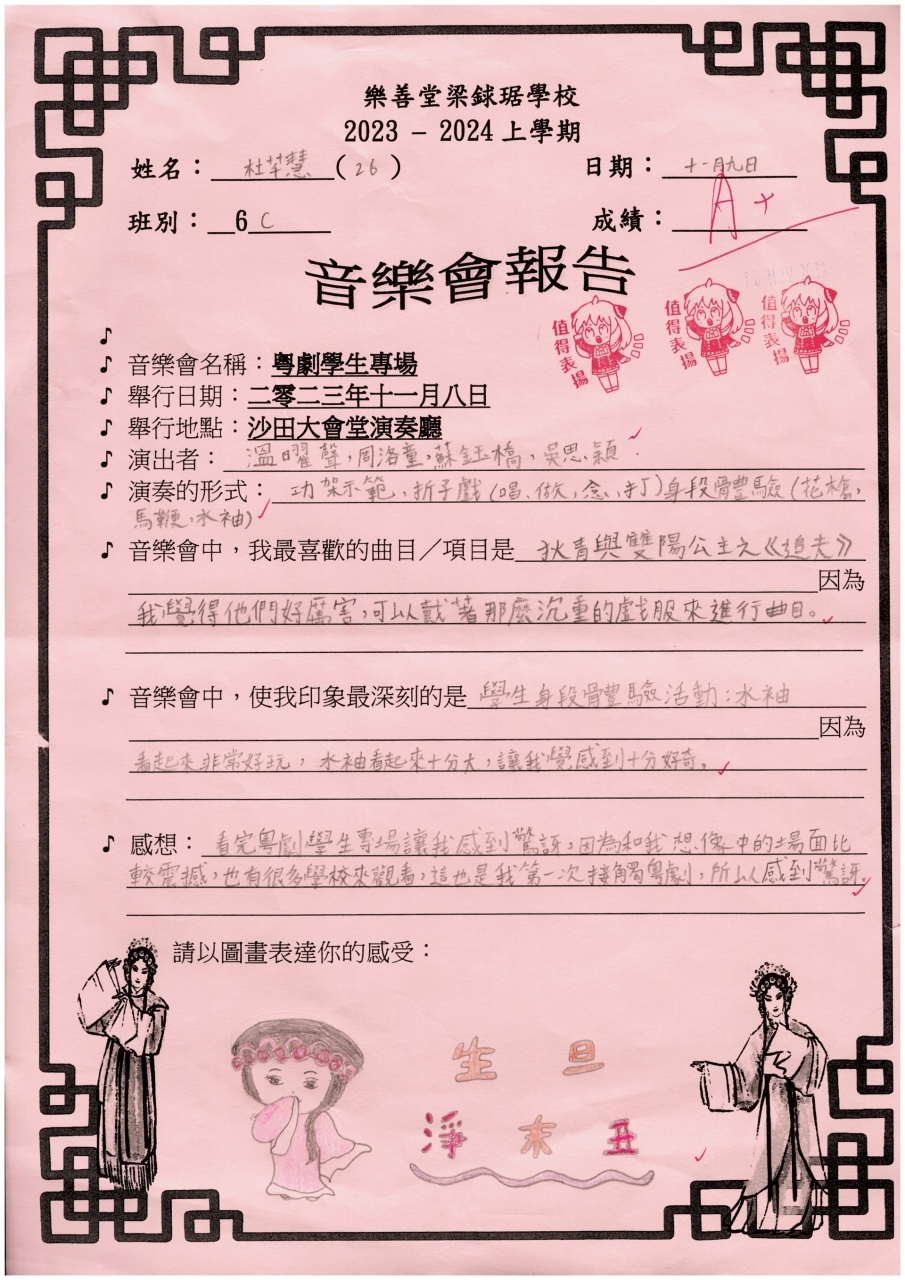 樂善堂梁銶琚學校
2023 – 2024 上學期
姓名：杜芊慧(26) 日期：十一月九日
班別：6C 成績：A+
音樂會報告
值得表揚 值得表揚 值得表揚
♪
♪ 音樂會名稱：粵劇學生專場
♪ 舉行日期：二零二三年十一月八日
♪ 舉行地點：沙田大會堂演奏廳
♪ 演出者：溫曜聲，周洛童，蘇鈺橋，吳思穎
♪ 演奏的形式：功架示範、折子戲(唱、做、念、打)身段體驗(花槍，
馬鞭，水袖)
♪ 音樂會中，我最喜歡的曲目／項目是 狄青與雙陽公主之《追夫》
因為
我覺得他們好厲害，可以戴著那麼沉重的戲服來進行曲目。
♪ 音樂會中，使我印象最深刻的是 學生身段體驗活動：水袖
因為
看起來非常好玩，水袖看起來十分大，讓我覺感到十分好奇。
♪ 感想：看完粵劇學生專場讓我感到驚訝，因為和我想像中的場面比
較震撼，也有很多學校來觀看，這也是我第一次接觸粵劇，所以感到驚訝。
請以圖畫表達你的感受：
生 旦
淨 末 丑